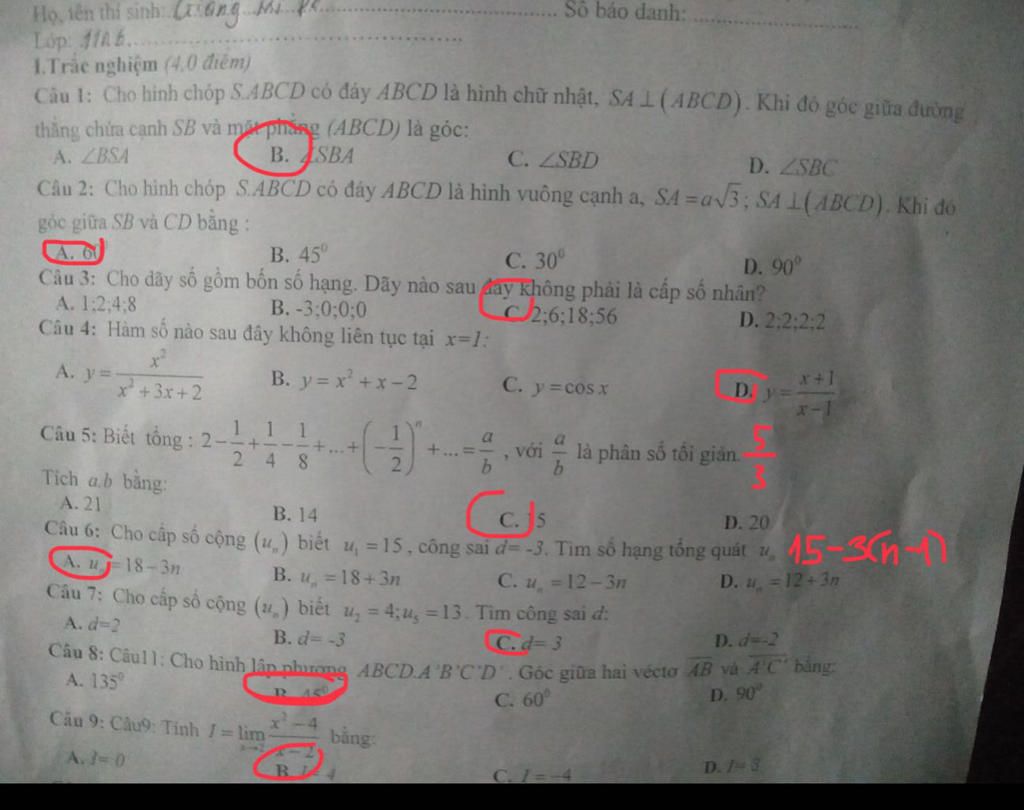 Họ, tên thí sinh: ........................ Số báo danh: ........................
Lớp: 11A6
I.Trắc nghiệm (4,0 điểm)
Câu 1: Cho hình chóp S.ABCD có đáy ABCD là hình chữ nhật, SA ⊥ (ABCD). Khi đó góc giữa đường
thẳng chứa cạnh SB và mặt phẳng (ABCD) là góc:
A. ∠BSA B. ∠SBA C. ∠SBD D. ∠SBC
Câu 2: Cho hình chóp S.ABCD có đáy ABCD là hình vuông cạnh a, SA = a√3; SA ⊥ (ABCD). Khi đó
góc giữa SB và CD bằng :
A. 60⁰ B. 45⁰ C. 30⁰ D. 90⁰
Câu 3: Cho dãy số gồm bốn số hạng. Dãy nào sau đây không phải là cấp số nhân?
A. 1;2;4;8 B. -3;0;0;0 C. 2;6;18;56 D. 2;2;2;2
Câu 4: Hàm số nào sau đây không liên tục tại x=1:
A. y = x²/(x²+3x+2) B. y = x² + x − 2 C. y = cos x D. y = (x+1)/(x−1)
Câu 5: Biết tổng : 2 − 1/2 + 1/4 − 1/8 + ... + (−1/2)ⁿ + ... = a/b , với a/b là phân số tối giản. 5/3
Tích a.b bằng:
A. 21 B. 14 C. 15 D. 20
Câu 6: Cho cấp số cộng (uₙ) biết u₁ = 15 , công sai d= -3. Tìm số hạng tổng quát uₙ 15-3(n-1)
A. uₙ = 18 − 3n B. uₙ = 18 + 3n C. uₙ = 12 − 3n D. uₙ = 12 + 3n
Câu 7: Cho cấp số cộng (uₙ) biết u₂ = 4; u₅ = 13. Tìm công sai d:
A. d=2 B. d= -3 C. d= 3 D. d=-2
Câu 8: Câu11: Cho hình lập phương ABCD.A'B'C'D'. Góc giữa hai véctơ AB và A'C' bằng:
A. 135⁰ B. 45⁰ C. 60⁰ D. 90⁰
Câu 9: Câu9: Tính I = lim x→2 (x²−4)/(x−2) bằng:
A. I= 0 B. I= 4 C. I = −4 D. I= 3